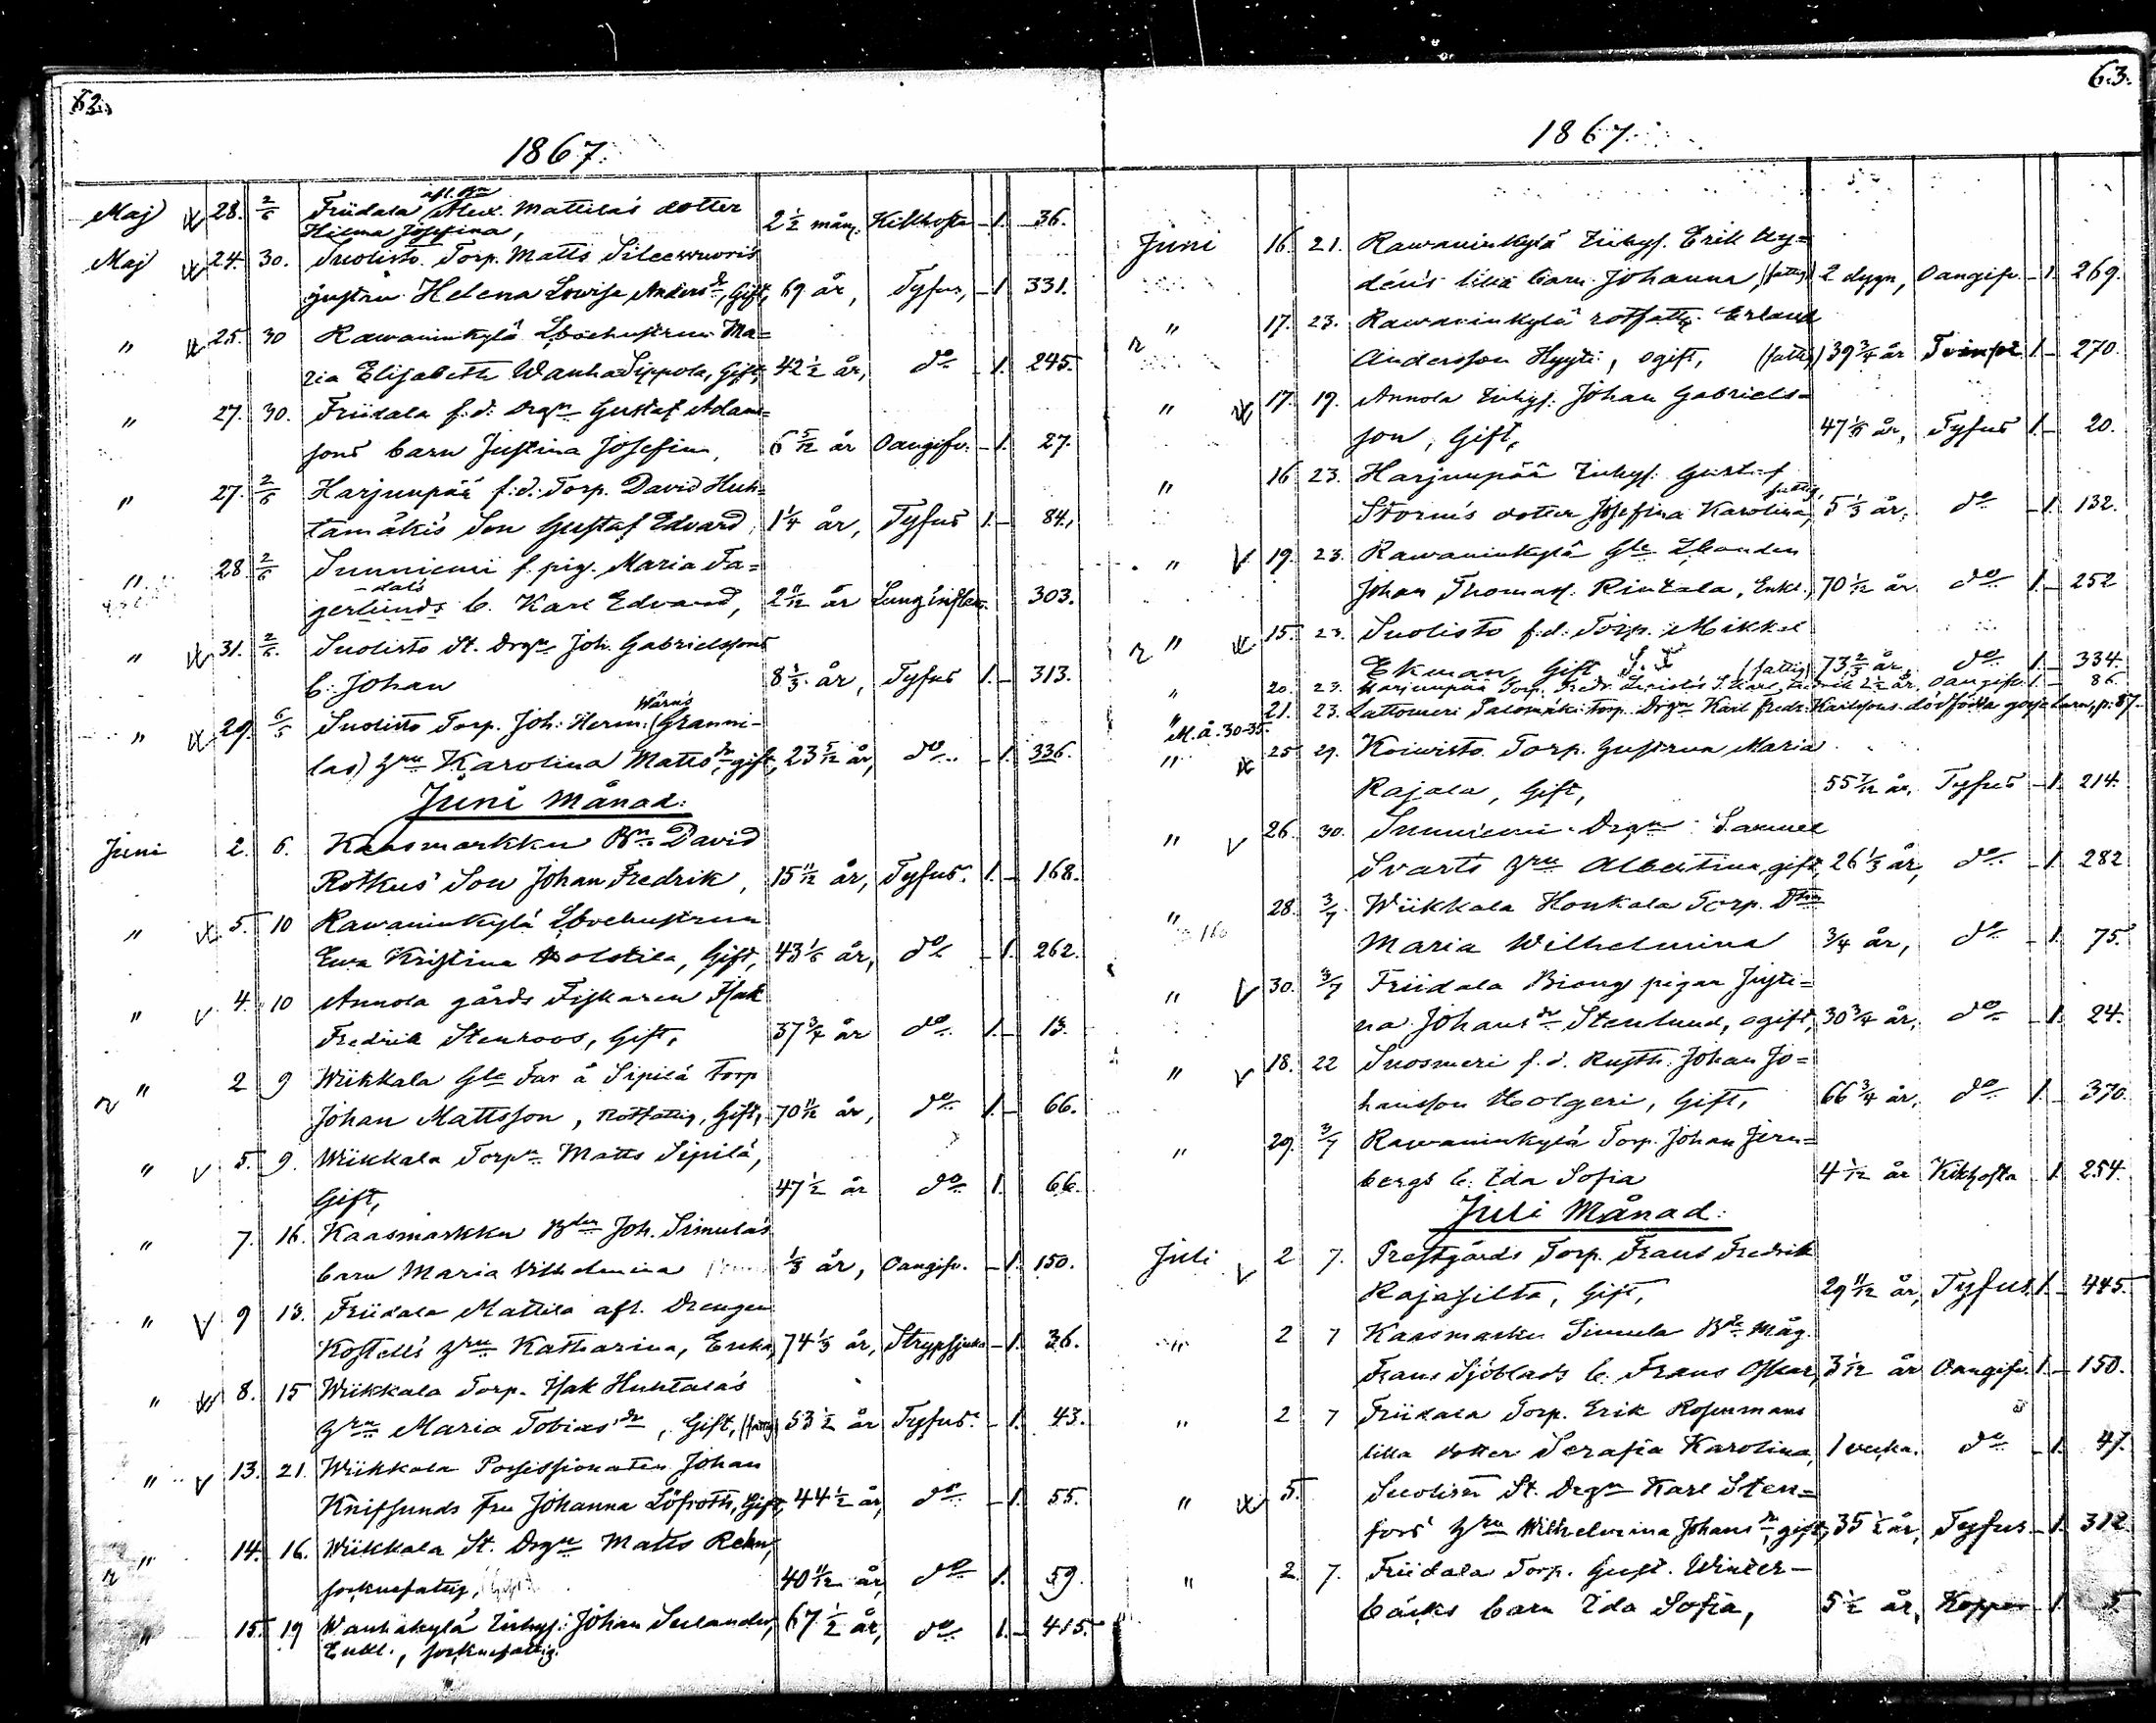 62.
1867.
afl. Bn
Maj 28. 2/6 Friidala Alex. Mattila's dotter
Hilma Josefina, 2 1/2 mån. Kikhosta - 1. 36.
Maj 24. 30. Suolisto Torp. Matts
hustru Helena Lovisa Anders dr, Gift, 69 år, Tyfus, - 1 331.
" 25. 30 Rawaninkylä Ma=
ria Elisabeth Wanha Sippola, Gift, 42 1/2 år, do - 1. 245.
" 27. 30. Friidala f.d. Drgn Gustaf Adam=
sons barn Justina Josefina, 6 5/12 år Oangifv. - 1. 27.
" 27. 2/6 Harjunpää f.d. Torp. David Huh=
tamäkis Son Gustaf Edvard, 1 1/4 år, Tyfus 1. - 84.
" 28 2/6 Sunniemi f. pig. Maria Fa=
-dals
gerlunds b. Karl Edvard, 2 11/12 år Lunginflam. 303.
" 31. 2/6. Suolisto St. Drgn Joh. Gabrielssons
b. Johan 8 1/3 år, Tyfus 1. - 313.
Wärns
" 29. 6/5 Suolisto Torp. Joh. Herm. (Granni-
las) hru Karolina Matts dr, gift, 23 5/12 år, do - 1. 336.
Juni Månad:
Juni 2. 6. Kaasmarkku Bn David
Rotkus' Son Johan Fredrik, 15 11/12 år, Tyfus. 1. - 168.
" 5. 10 Rawaninkylä
Ewa Kristina Holstila, Gift, 43 1/6 år, do - 1. 262.
" 4. 10 Annola gårds Fiskaren Isak
Fredrik Stenroos, Gift, 37 3/4 år do 1. - 13.
" 2 9 Wiikkala Gle Far å Sipilä Torp
Johan Mattsson, Rotfattig, Gift, 70 11/12 år, do 1. - 66.
" 5. 9. Wiikkala Torpn Matts Sipilä,
Gift, 47 1/2 år do 1. 66.
" 7. 16. Kaasmarkku Bden Joh. Simula's
barn Maria Vilhelmina 1/3 år, Oangifv. - 1. 150.
" 9 13. Friidala Mattila afl. Drengen
Kostell's hru Katharina, Enka, 74 1/3 år, Strypsjuka - 1. 36.
" 8. 15 Wiikkala Torp. Isak Huhtala's
hru Maria Tobias dr, Gift, (fattig) 53 1/2 år Tyfus. - 1. 43.
" 13. 21. Wiikkala Possessionaten Johan
Knifsunds Fru Johanna Löfroth, Gift, 44 1/2 år, do - 1. 55.
" 14. 16. Wiikkala St. Drgn Matts Rehn,
socknefattig, 40 11/12 år, do 1. 59.
" 15. 19 Wanhakylä Inhys: Johan Selander, 67 1/2 år, do 1. - 415.
Enkl., socknefattig.
63.
1867.
Juni 16. 21. Rawaninkylä Inhys. Erik Ny=
dén's lilla barn Johanna, (fattig) 2 dygn, Oangifv. - 1. 269.
" 17. 23. Rawaninkylä rotfattig Erland
Andersson Hyyti, ogift, (fattig) 39 3/4 år 1. - 270.
" 17. 19. Annola Inhys. Johan Gabriels=
son, Gift, 47 år, Tyfus 1. - 20.
" 16 23. Harjunpää Inhys. Gustaf
fattig
Storms dotter Josefina Karolina, 5 1/3 år, do - 1. 132.
" 19. 23. Rawaninkylä Gle
Johan Thomas. Rintala, Enkl., 70 1/2 år do 1. - 252
" 15. 23. Suolisto f.d. Torp. Mikkel
Ekman, Gift (fattig) 73 2/3 år, do 1. - 334.
" 20. 23. Harjunpää Torp. Fredr. S. Karl Fredrik 2 1/2 år Oangifv. 1. - 86
" 21. 23. Lattomeri Salomäki Torp. Drgn Karl Fredr. Karlssons dödfödda gossebarn, p. 87.
M. å. 30-35.
" 25 29. Koivisto Torp. hustrun Maria
Rajala, Gift, 55 7/12 år, Tyfus - 1. 214.
" 26. 30. Sunniemi Drgn Samuel
Svarts hru Albertina, gift, 26 1/3 år, do - 1. 282
" 28. 3/7. Wiikkala Honkala Torp. Dtrn
Maria Wilhelmina 3/4 år, do - 1. 75.
" 30. 3/7 Friidala pigan Justi=
na Johans dr Stenlund, ogift, 30 3/4 år, do - 1. 24.
" 18. 22 Suosmeri f.d. Rusth. Johan Jo=
hansson Holgeri, Gift, 66 3/4 år, do 1. - 370.
" 29. 3/7 Rawaninkylä Torp. Johan Jern=
bergs b. Ida Sofia 4 1/12 år Kikhosta 1. 254.
Juli Månad:
Juli 2 7. Prestgårds Torp. Frans Fredrik
Rajasilta, Gift, 29 11/12 år, Tyfus 1. - 445.
" 2 7 Kaasmarku Simula Bds Måg
Frans Sjöblads b. Frans Oskar, 3 1/12 år Oangifv. 1. - 150.
" 2 7 Friidala Torp. Erik Rosenmans
lilla dotter Serafia Karolina, 1 vecka. do - 1. 47.
" 5. Suolisto St. Drgn Karl Sten=
fors' hru Wilhelmina Johans dr, gift, 35 1/2 år, Tyfus - 1. 312
" 2. 7. Friidala Torp. Gust. Winter-
bäcks barn Ida Sofia, 5 1/2 år, Koppor - 1. 5.